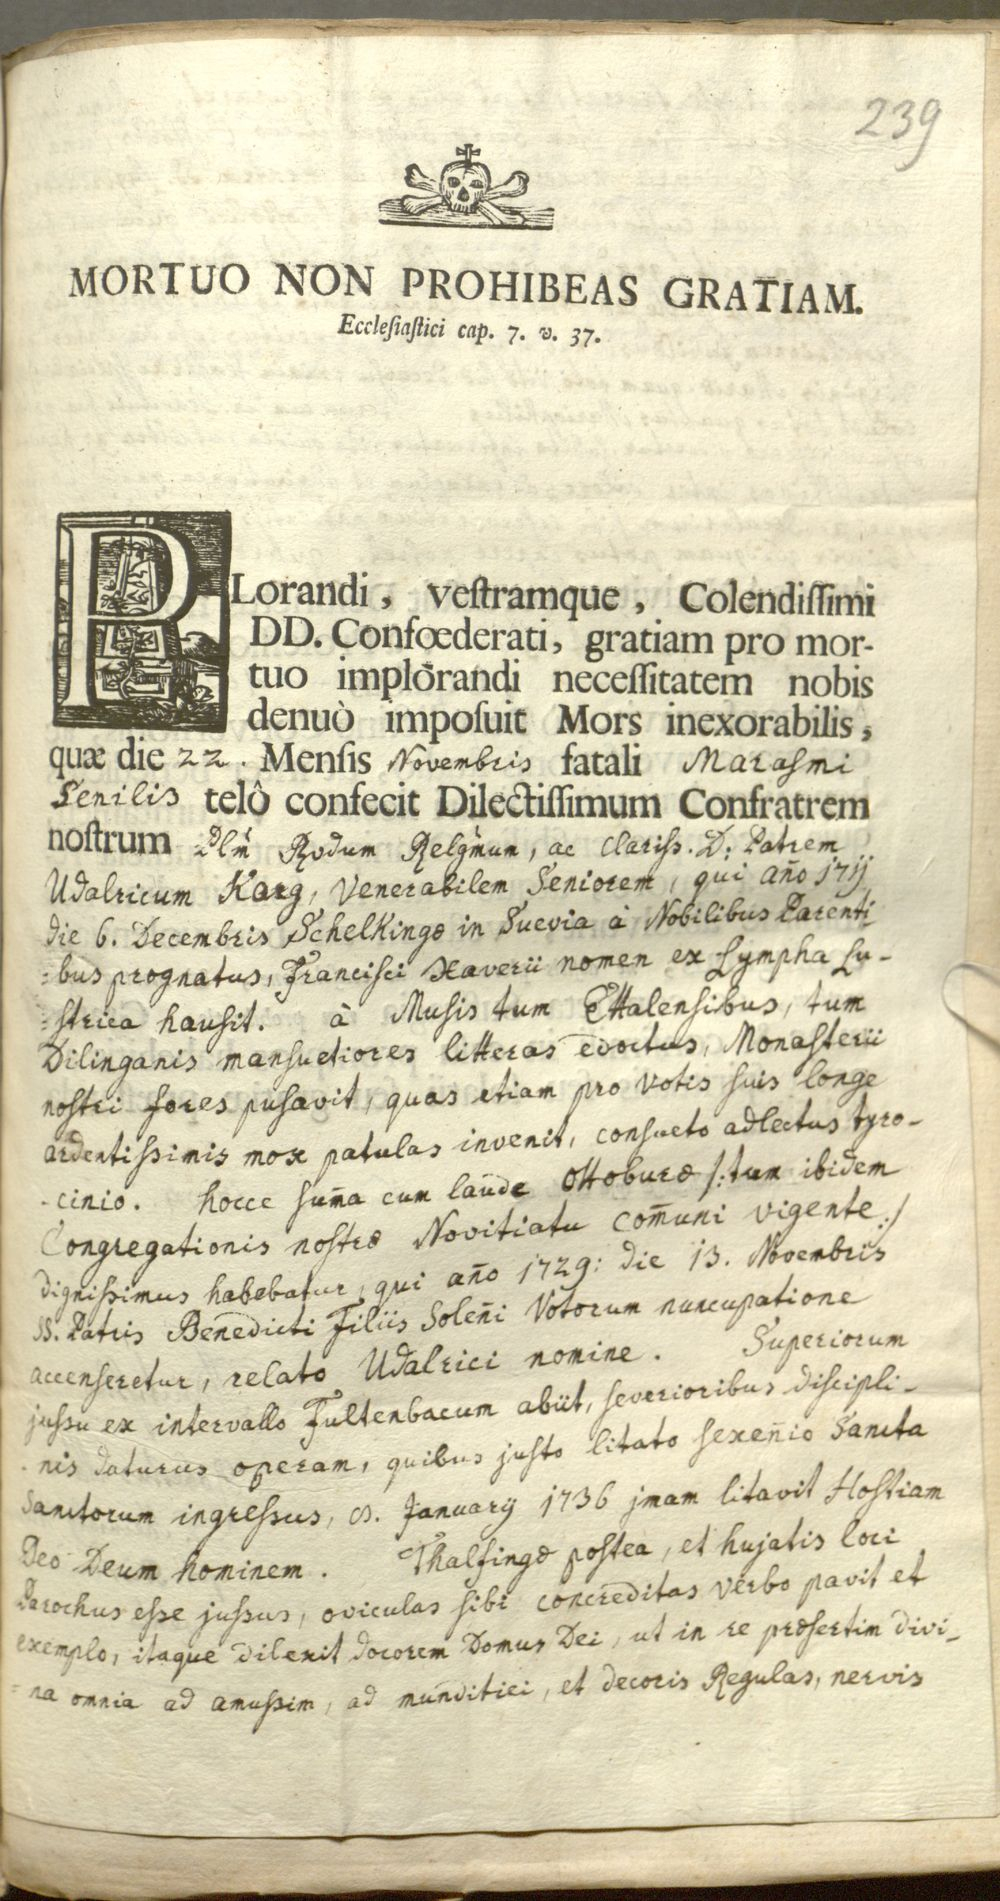 239
MORTUO NON PROHIBEAS GRATIAM.
Ecclesiastici cap. 7. v. 37.
PLorandi, vestramque, Colendissimi
DD. Confœderati, gratiam pro mor-
tuo implorandi necessitatem nobis
denuò imposuit Mors inexorabilis,
quæ die 22. Mensis Novembris fatali Marasmi
Senilis telô confecit Dilectissimum Confratrem
nostrum Plm̃ Rṽdum Relgm̃um, ac clariss. D: Patrem
Udalricum Karg, Venerabilem Seniorem, qui año 1711
die 6. Decembris Schelkingæ in Suevia à Nobilibus Parenti
=bus prognatus, Francisci Xaverii nomen ex Lympha Lu-
=strica hausit. à Musis tum Ettalensibus, tum
Dilinganis mansuetiores litteras edoctus, Monasterii
nostri fores pulsavit, quas etiam pro votis suis longe
ardentissimis mox patulas invenit, consueto adlectus tyro-
-cinio. hocce sum̃a cum laude Ottoburæ /: tum ibidem
Congregationis nostræ Novitiatu com̃uni vigente :/
dignissimus habebatur, qui año 1729: die 13. Novembris
SS. Patris Benedicti Filiis Soleñi Votorum nuncupatione
accenseretur, relato Udalrici nomine. Superiorum
jussu ex intervallo Fultenbacum abiit, severioribus discipli-
-nis daturus operam, quibus justo litato sexeñio Sancta
Sanctorum ingressus, 8. January 1736 jmam litavit Hostiam
Deo Deum hominem. Thalfingæ postea, et hujatis loci
Parochus esse jussus, oviculas sibi concreditas verbo pavit et
exemplo, itaque dilexit decorem Domus Dei, ut in re præsertim divi-
=na omnia ad amussim, ad munditiei, et decoris Regulas, nervis